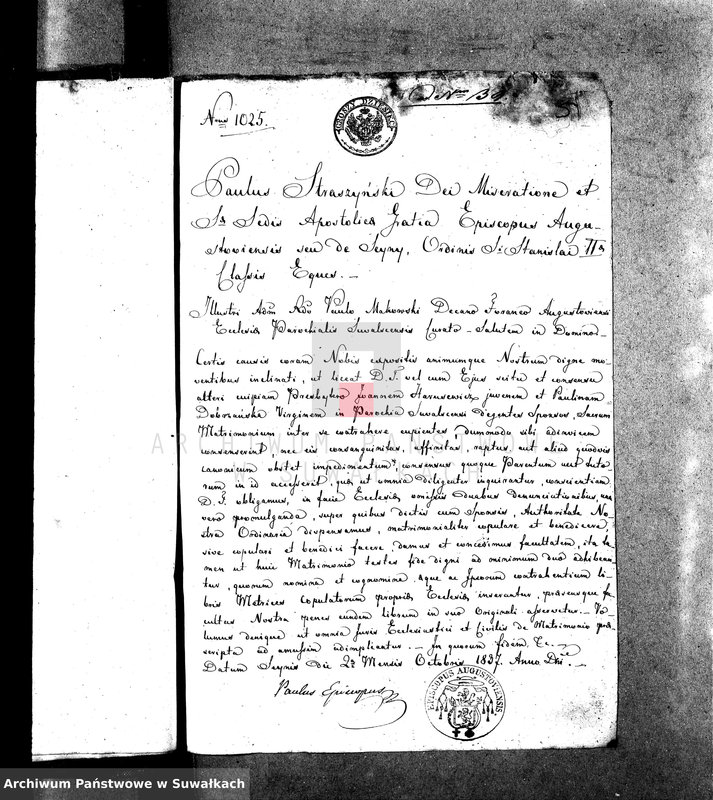 Nrus 1025.
Ad Nm 130
GROSZY DZIESIĘĆ
Paulus Straszyński Dei Miseratione et
Sæ Sedis Apostolicæ Gratia Episcopus Augu-
stoviensis seu de Seyny, Ordinis Si Stanislai IIæ
Classis Eques. -
Illustri Adm Rdo Paulo Makowski Decano Foraneo Augustoviensi
Ecclesiæ Parochialis Suvalscensis Curato - Salutem in Domino -
Certis causis coram Nobis expositis animumque Nostrum digne mo-
ventibus inclinati, ut liceat D. T. vel cum Ejus scitu et consensu
alteri cuipiam Presbytero Joannem Staniscewicz juvenem et Paulinam
Dobrzańska Virginem in Parochia Suvalscensi Degentes Sponsos, Sacrum
Matrimonium inter se contrahere cupientes dummodo sibi adinvicem
consenserint, nec eis consanguinitas, affinitas, raptus, aut aliud quodvis
canonicum obstet impedimentum, consensus quoque Parentum vel Tuto-
rum in id accesserit, quæ ut omnia diligenter inquirantur, conscientiam
D. T. obligamus, in facie Ecclesiæ omissis duabus denunciationibus, una
vero promulganda, super quibus dictis cum Sponsis, Authoritate No-
stra Ordinaria dispensamus, matrimonialiter copulare et benedicere,
sive copulari et benedici facere, damus et concedimus facultatem, ita ta-
men ut huic Matrimonio testes fide digni ad minimum duo adhibean-
tur, quorum nomina et cognomina, æque ac Ipsorum contrahentium li-
bris Metrices copulatorum propriæ Ecclesiæ inserantur, præsensque fa-
cultas Nostra penes eundem librum in suo Originali asservetur. - Vo-
lumus denique ut omnia Juris Ecclesiastici et Civilis de Matrimonio præ-
scripta ad amussim adimpleantur. - In quorum fidem &c. -
Datum Seynis Die 2 Mensis Octobris 1837. Anno Dni. -
Paulus Episcopus
EPISCOPUS AUGUSTOVIENSIS
ARCHIWUM PAŃSTWOWE
W SUWAŁKACH
Archiwum Państwowe w Suwałkach